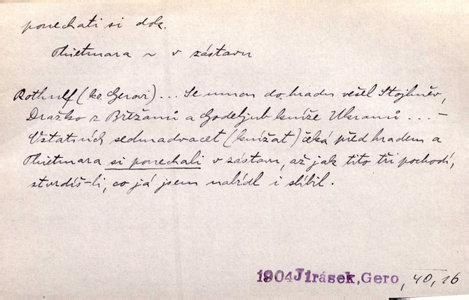 ponechati si dok.
Thietmara ~ v zástavu
Rothulf (ke Gerovi)... Se mnou do hradu vešel Stojhněv,
Dražko z Břžanů a Godeljub kníže Ukranů... –
Ostatních sedmadvacet (knížat) čeká před hradem a
Thietmara si ponechali v zástavu, až jak tito tři pochodí,
stvrdíš-li, co já jsem nabídl i slíbil.
1904 Jirásek, Gero, 40, 26